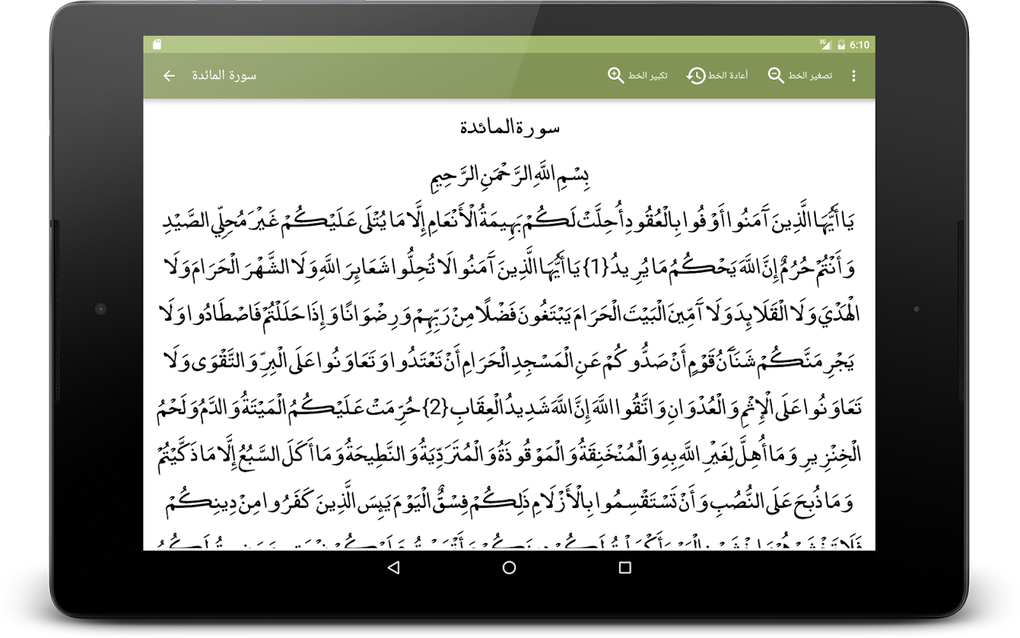 3G 6:10
سورة المائدة تكبير الخط أعادة الخط تصغير الخط
سورة المائدة
بِسْمِ اللَّهِ الرَّحْمَنِ الرَّحِيمِ
يَا أَيُّهَا الَّذِينَ آَمَنُوا أَوْفُوا بِالْعُقُودِ أُحِلَّتْ لَكُمْ بَهِيمَةُ الْأَنْعَامِ إِلَّا مَا يُتْلَى عَلَيْكُمْ غَيْرَ مُحِلِّي الصَّيْدِ
وَأَنْتُمْ حُرُمٌ إِنَّ اللَّهَ يَحْكُمُ مَا يُرِيدُ {1} يَا أَيُّهَا الَّذِينَ آَمَنُوا لَا تُحِلُّوا شَعَايِرَ اللَّهِ وَلَا الشَّهْرَ الْحَرَامَ وَلَا
الْهَدْيَ وَلَا الْقَلَايِدَ وَلَا آَمِّينَ الْبَيْتَ الْحَرَامَ يَبْتَغُونَ فَضْلًا مِنْ رَبِّهِمْ وَرِضْوَانًا وَإِذَا حَلَلْتُمْ فَاصْطَادُوا وَلَا
يَجْرِمَنَّكُمْ شَنَآَنُ قَوْمٍ أَنْ صَدُّوكُمْ عَنِ الْمَسْجِدِ الْحَرَامِ أَنْ تَعْتَدُوا وَتَعَاوَنُوا عَلَى الْبِرِّ وَالتَّقْوَى وَلَا
تَعَاوَنُوا عَلَى الْإِثْمِ وَالْعُدْوَانِ وَاتَّقُوا اللَّهَ إِنَّ اللَّهَ شَدِيدُ الْعِقَابِ {2} حُرِّمَتْ عَلَيْكُمُ الْمَيْتَةُ وَالدَّمُ وَلَحْمُ
الْخِنْزِيرِ وَمَا أُهِلَّ لِغَيْرِ اللَّهِ بِهِ وَالْمُنْخَنِقَةُ وَالْمَوْقُوذَةُ وَالْمُتَرَدِّيَةُ وَالنَّطِيحَةُ وَمَا أَكَلَ السَّبُعُ إِلَّا مَا ذَكَّيْتُمْ
وَمَا ذُبِحَ عَلَى النُّصُبِ وَأَنْ تَسْتَقْسِمُوا بِالْأَزْلَامِ ذَلِكُمْ فِسْقٌ الْيَوْمَ يَيِسَ الَّذِينَ كَفَرُوا مِنْ دِينِكُمْ